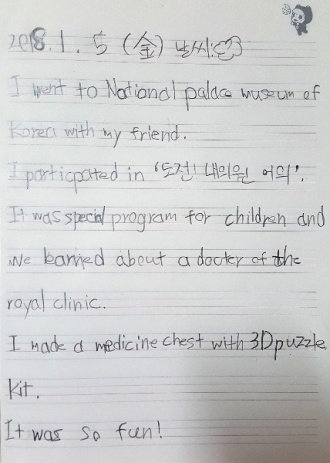 2018. 1. 5 (金) 날씨:
I went to National palace museum of
Korea with my friend.
I participated in '도전! 내의원 어의'.
It was special program for children and
we banned about a docter of the
royal clinic.
I made a medicine chest with 3D puzzle
kit.
It was so fun!